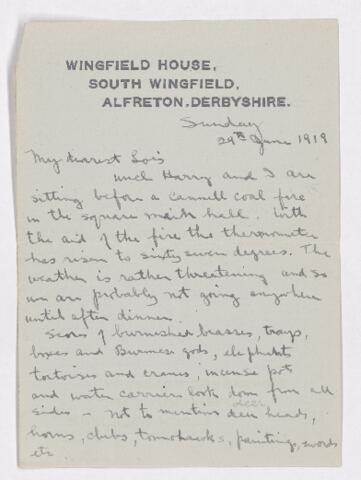 WINGFIELD HOUSE,
SOUTH WINGFIELD,
ALFRETON, DERBYSHIRE.
Sunday
29th June 1919
My dearest Lois
Uncl Harry and I are
sitting before a cannell coal fire
in the square main hall. With
the aid of the fire the thermometer
has risen to sixty seven degrees. The
weather is rather threatening and so
we are probably not going anywhere
until after dinner.
Scores of burnished brasses, trays,
boxes and Burmese gods, elephants
tortoises and cranes, incense pots
and water carriers look down from all
sides – not to mention deer heads,
horns, clubs, tomohawks, paintings, swords
etc